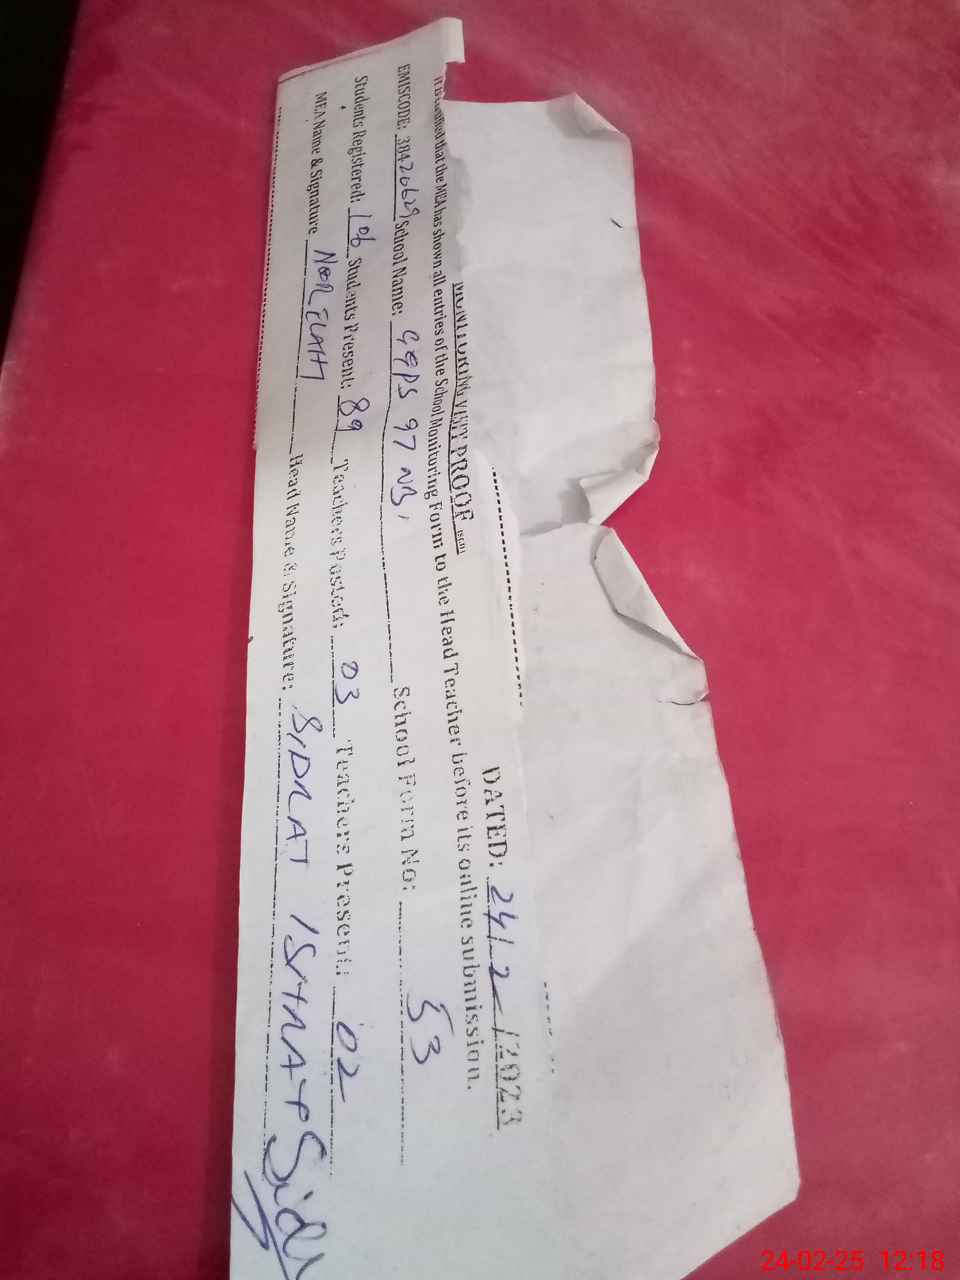 MONITORING VISIT PROOF
DATED: 24/2/2023
that the MEA has shown all entries of the School Monitoring Form to the Head Teacher before its online submission.
EMISCODE: 38420629 School Name: GGPS 97 NB, School Form No: 53
Students Registered: 106 Students Present: 89 Teachers Posted: 03 Teachers Present: 02
MEA Name & Signature NOOR ELAHI Head Name & Signature: SIDRAT
24-02-25 12:18